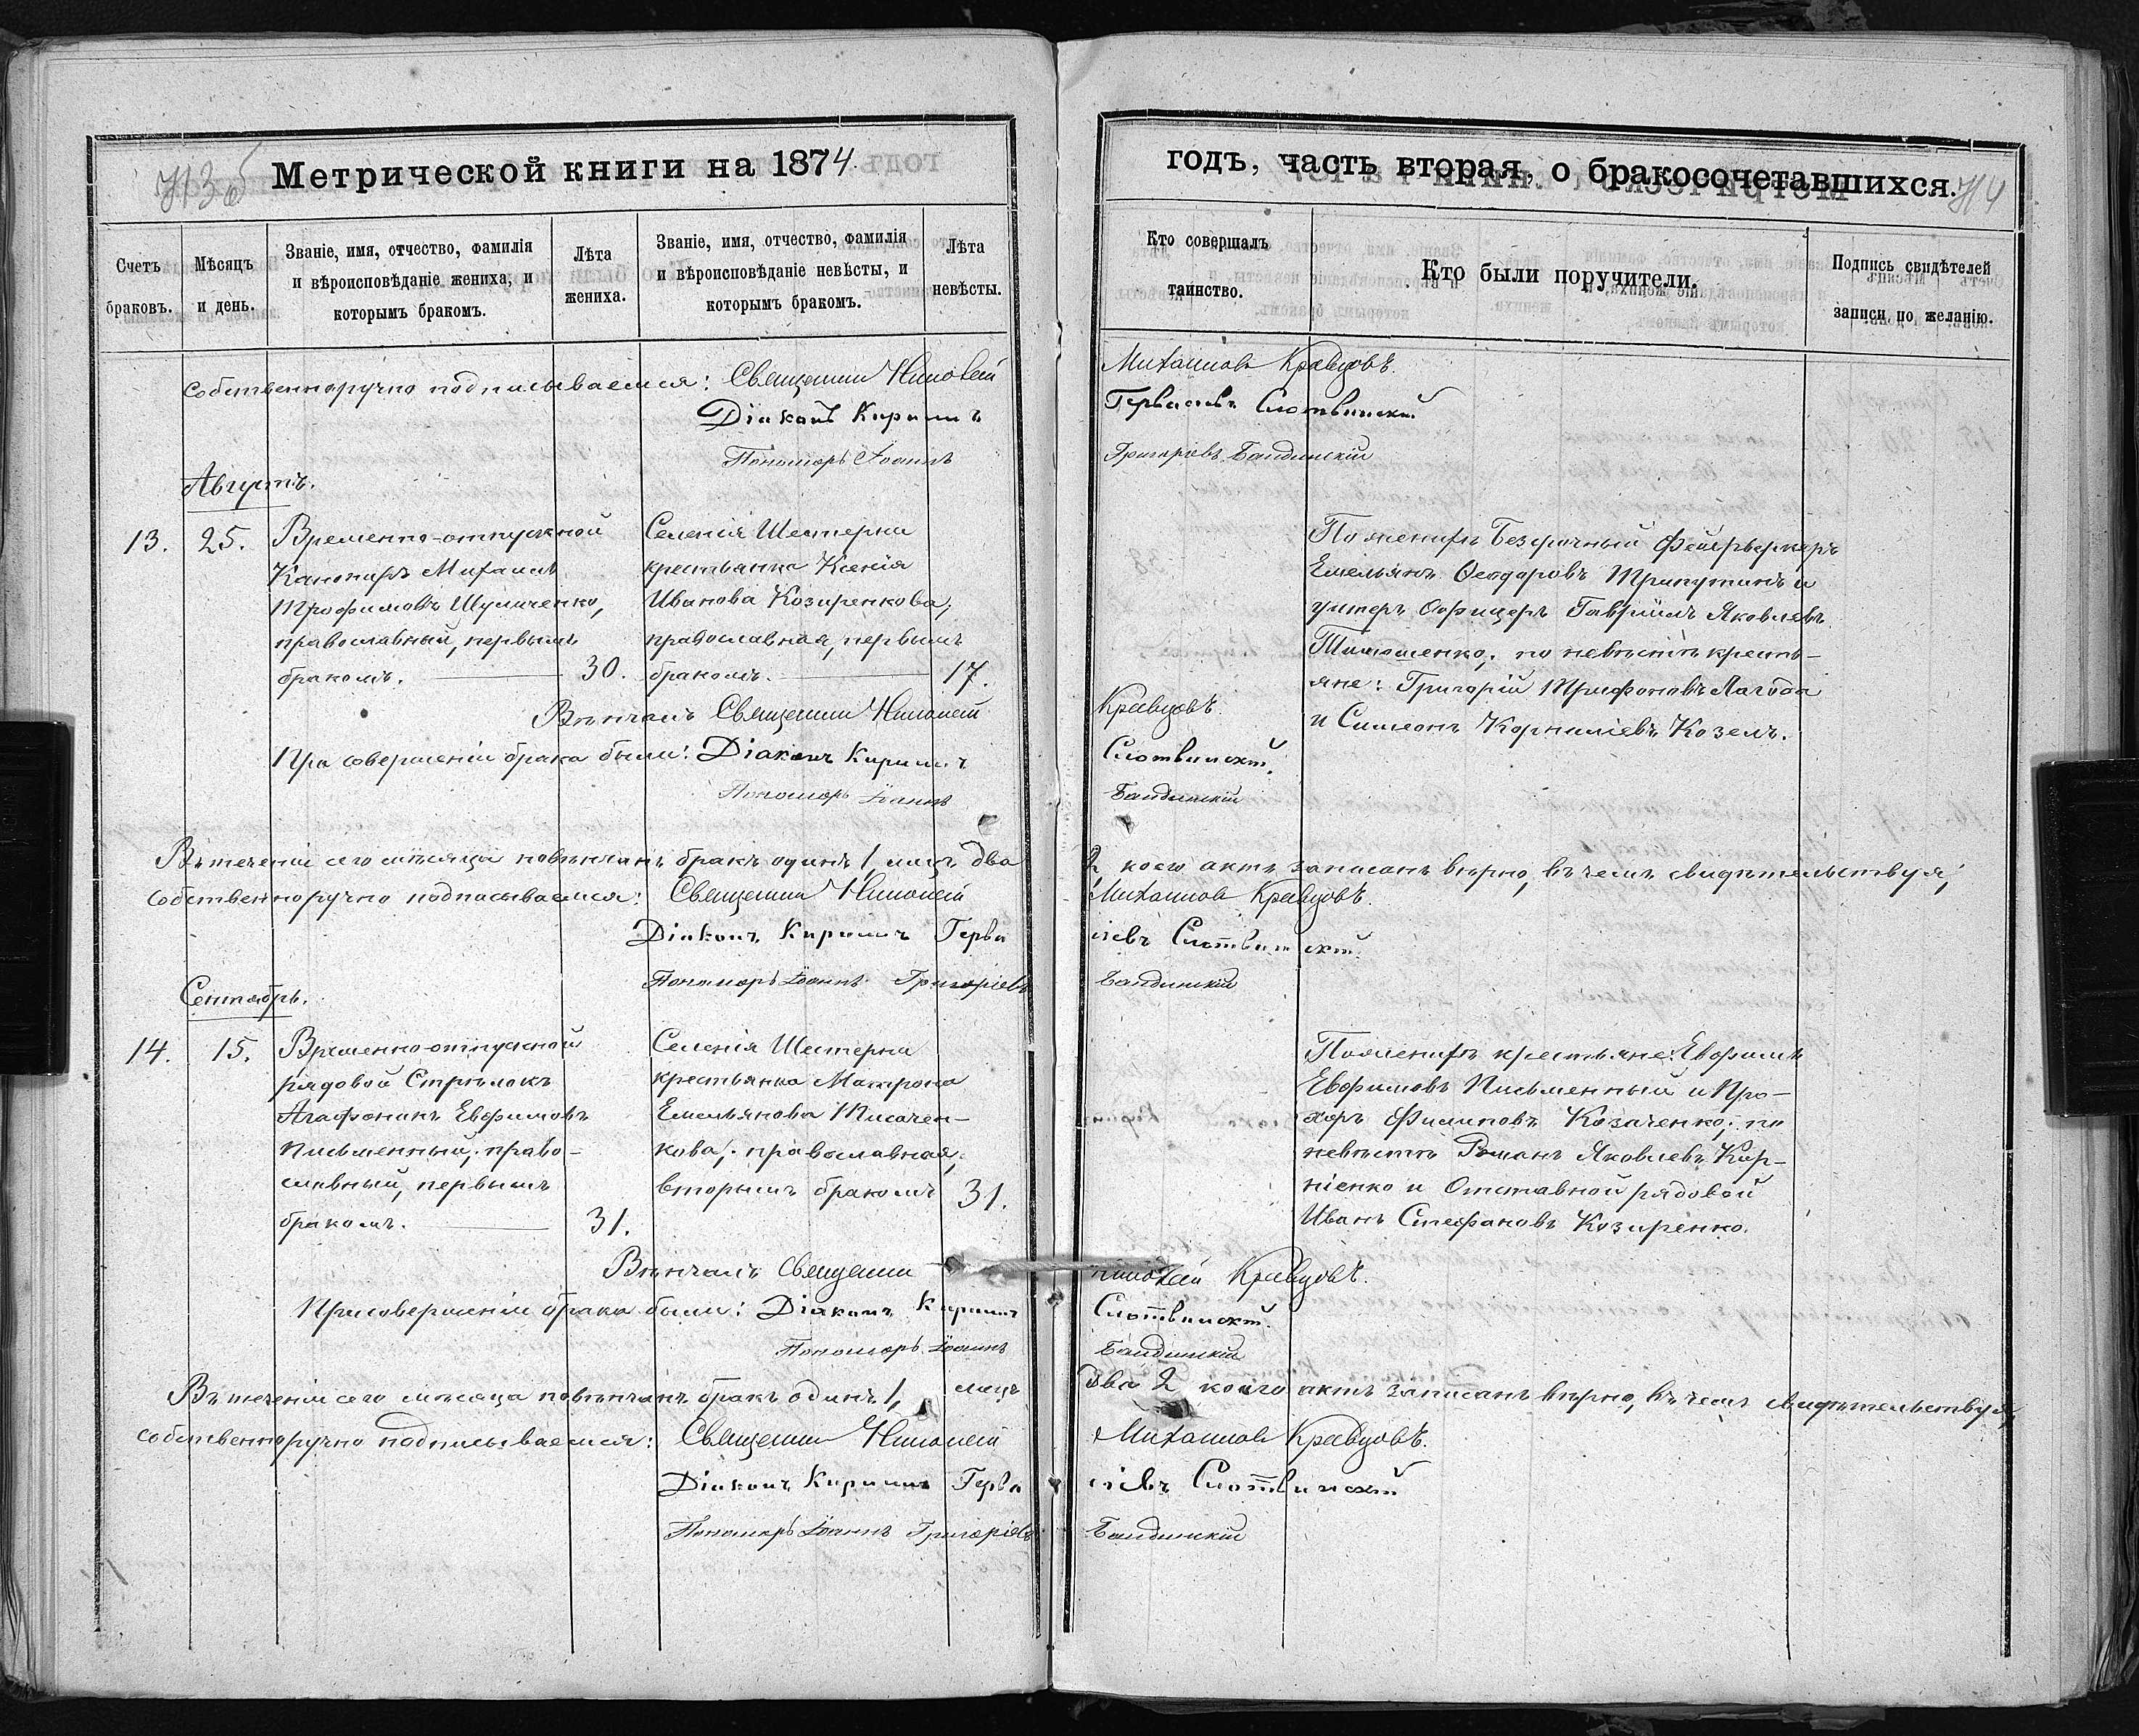 Метрической книги на 1874.
годъ, часть вторая, о бракосочетавшихся.
Счетъ браковъ.
Мѣсяцъ и день.
Званіе, имя, отчество, фамилія
и вѣроисповѣданіе жениха, и
которымъ бракомъ.
Лѣта
жениха.
Званіе, имя, отчество, фамилія
и вѣроисповѣданіе невѣсты, и
которымъ бракомъ.
Лѣта
невѣсты.
Кто совершалъ
таинство.
Кто были поручители.
Подпись свидѣтелей
записи по желанію.
собственноручно подписываемся: Священник Николай Михаиловъ Кравцовъ.
Діаконъ Кирилъ Гервасіевъ Слотвинскій
Пономарь Іоаннъ Григоріевъ
Августъ.
13.
25.
Временно-отпускной
Канониръ Михаилъ
Трофимовъ Шуличенко,
православный, первымъ
бракомъ.
30.
Селенія Шестерни
крестьянка Ксенія
Иванова Козиренкова,
православная, первымъ
бракомъ.
17.
По женихѣ Безсрочный Фейерверкеръ
Емельянъ Ѳеодоровъ Трипутинъ и
унтеръ Офицеръ Гавріилъ Яковлевъ
Тимошенко; по невѣстѣ крестъ-
яне: Григорій Трифоновъ Лагода
и Симеонъ Корниліевъ Козелъ.
Вѣнчалъ Священник Николай Кравцовъ.
При совершеніи брака были: Діаконъ Кирилъ Слотвинскій.
Пономарь Іоаннъ
Въ теченіи сего мѣсяца повѣнчанъ бракъ одинъ 1, лицъ два 2, коего актъ записанъ вѣрно, въ чемъ свидѣтельствуя,
собственноручно подписываемся: Священник Николай Михаиловъ Кравцовъ.
Діаконъ Кирилъ Гервасіевъ Слотвинскій
Пономарь Іоаннъ Григоріевъ
Сентябрь.
14.
15.
Временно-отпускной
рядовой Стрѣлокъ
Агафоникъ Евфимовъ
Письменный, право-
славный, первымъ
бракомъ.
31.
Селенія Шестерни
крестьянка Матрона
Емельянова
кова, православная,
вторымъ бракомъ
31.
По женихѣ крестьяне: Евфимъ
Евфимовъ Письменный и Про-
хоръ Филиповъ Козаченко; по
невѣстѣ Романъ Яковлевъ Кор-
ніенко и Отставной рядовой
Иванъ Стефановъ Козиренко.
Вѣнчалъ Священник Николай Кравцовъ.
При совершеніи брака были: Діаконъ Кирилъ Слотвинскій.
Пономарь Іоаннъ
Въ теченіи сего мѣсяца повѣнчанъ бракъ одинъ 1, лицъ два 2 коего актъ записанъ вѣрно, въ чемъ свидѣтельствуя,
собственноручно подписываемся: Священник Николай Михаиловъ Кравцовъ.
Діаконъ Кирилъ Гервасіевъ Слотвинскій
Пономарь Іоаннъ Григоріевъ